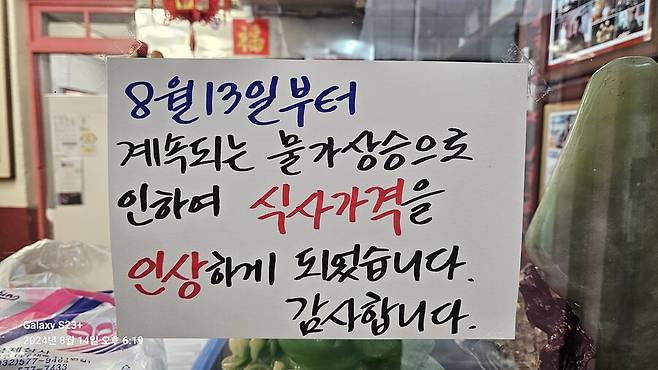 福
8월13일부터
계속되는 물가상승으로
인하여 식사가격을
인상하게 되었습니다.
감사합니다.
Galaxy S23+
2024년 8월 14일 오후 6:19
577-7433